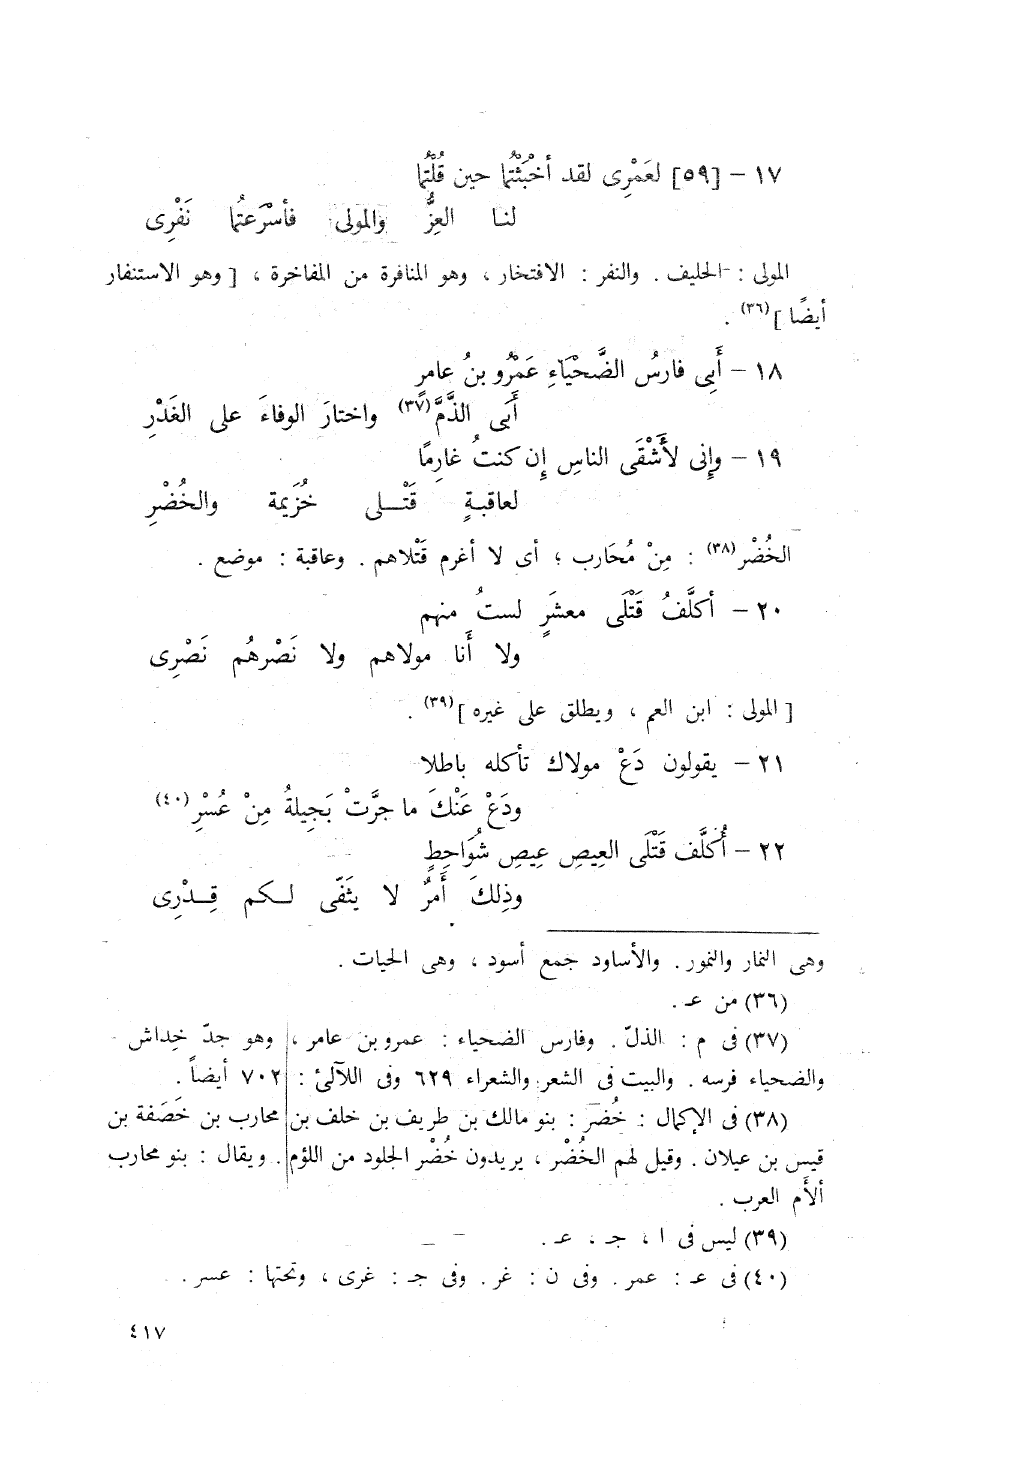 ١٧ – [٥٩] لعَمْرِى لقد أخْبَثْتُما حين قُلْتُما
لنا العِزُّ والمولى فأسْرَعتُما نَفْرِى
المولى : الحليف . والنفر : الافتخار ، وهو المنافرة من المفاخرة ، [ وهو الاستنفار
أيضًا ](٣٦) .
١٨ – أَبِى فارسُ الضَّحْيَاءِ عَمْرُو بنُ عامرٍ
أَبَى الذَّمَّ(٣٧) واختارَ الوفاءَ على الغَدْرِ
١٩ – وإنى لأَشْقَى الناسِ إن كنتُ غارِمًا
لعاقبةٍ قَتْلى خُزَيمة والخُضْرِ
الخُضْر(٣٨) : مِنْ مُحَارب ؛ أى لا أغرم قَتْلاهم . وعاقبة : موضع .
٢٠ – أكلَّفُ قَتْلَى معشَرٍ لستُ منهم
ولا أَنا مولاهم ولا نَصْرهُم نَصْرِى
[ المولى : ابن العم ، ويطلق على غيره ](٣٩) .
٢١ – يقولون دَعْ مولاك تأكله باطلا
ودَعْ عَنْكَ ما جرَّتْ بَجِيلةُ مِنْ عُسْرِ(٤٠)
٢٢ – أُكلَّف قَتْلَى العِيصِ عِيصِ شُوَاحِطٍ
وذِلكَ أَمرٌ لا يثَفّى لكم قِدْرِى
وهى النمار والنمور . والأساود جمع أسود ، وهى الحيات .
(٣٦) من عـ .
(٣٧) فى م : الذلّ . وفارس الضحياء : عمرو بن عامر ، وهو جدّ خِداش
والضحياء فرسه . والبيت فى الشعر والشعراء ٦٢٩ وفى اللآلئ : ٧٠٢ أيضاً .
(٣٨) فى الإكمال : خُضر : بنو مالك بن طريف بن خلف بن محارب بن خَصَفة بن
قيس بن عيلان . وقيل لهم الخُضْر ، يريدون خُضْر الجلود من اللؤم . ويقال : بنو محارب
ألأَم العرب .
(٣٩) ليس فى ا ، جـ ، عـ .
(٤٠) فى عـ : عمر . وفى ن : غر . وفى جـ : غرى ، وتحتها : عسر .
٤١٧